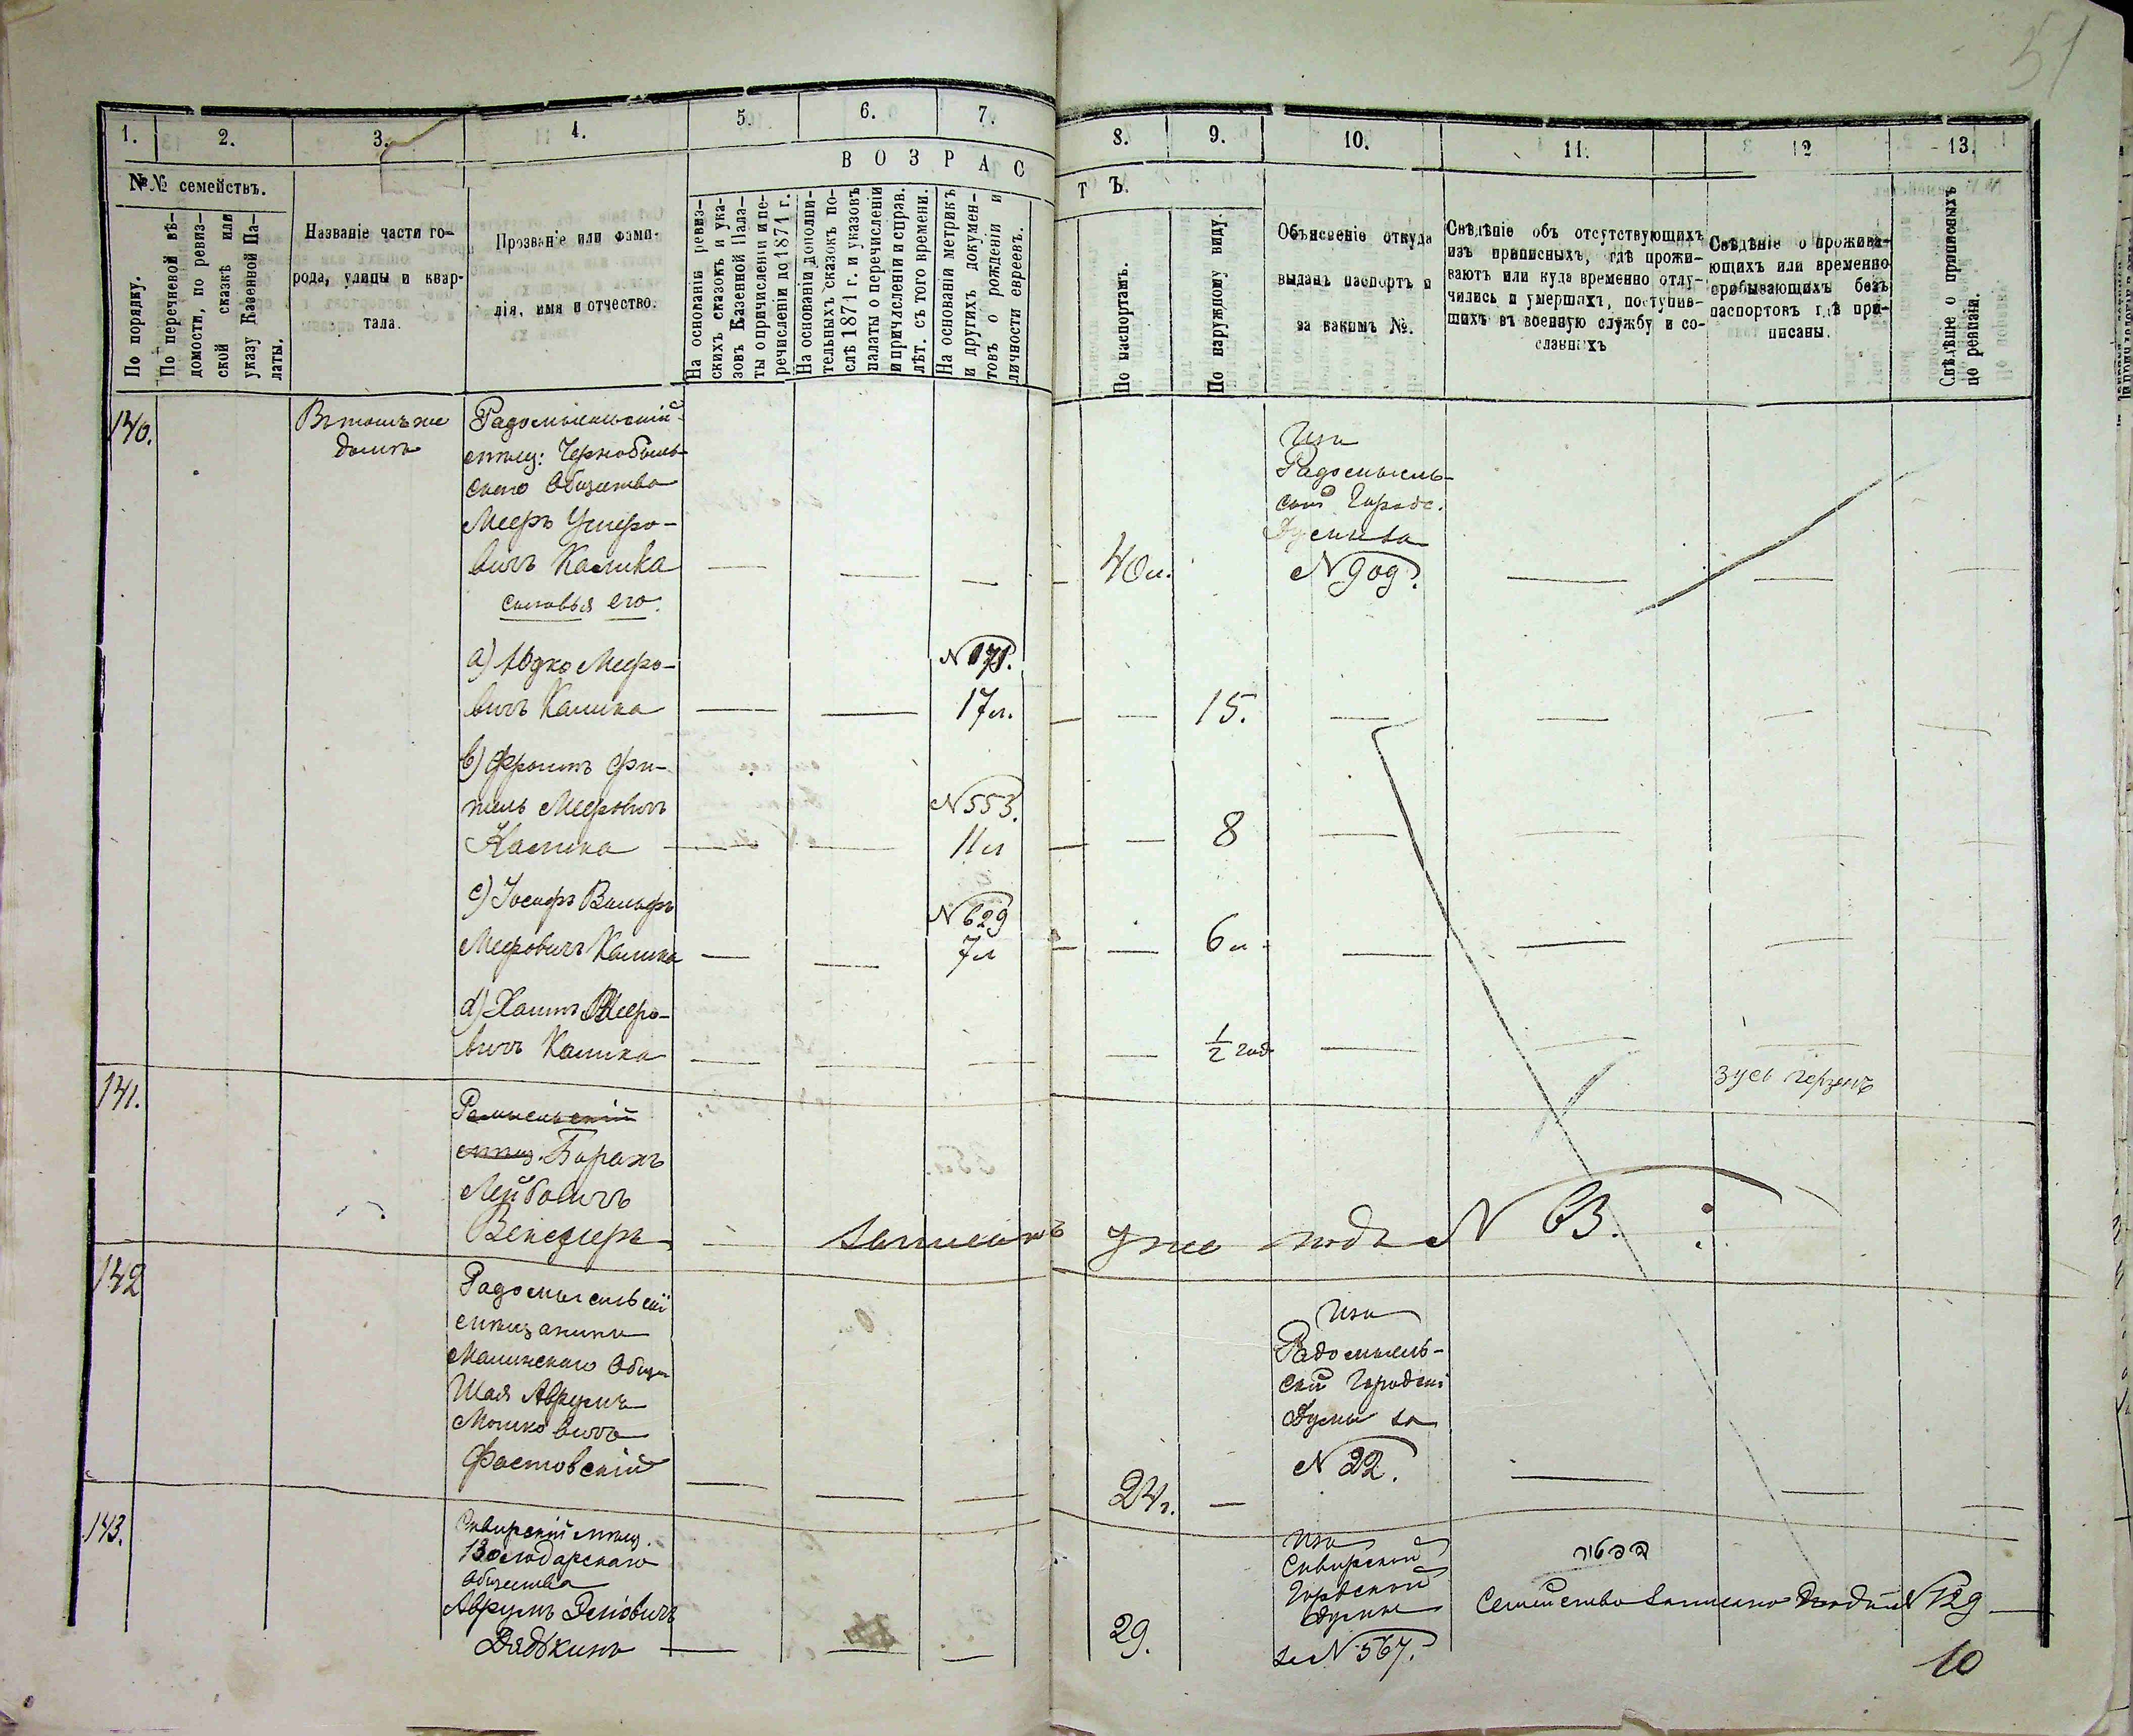 51
1. 2. 3. 4. 5. 6. 7. 8. 9. 10. 11. 12 13.
№№ семействъ.
По порядку.
По перечневой вѣ-
домости, по ревиз-
ской сказкѣ или
указу Казенной Па-
латы.
Названіе части го-
рода, улицы и квар-
тала.
Прозваніе или фами-
лія, имя и отчество.
ВОЗРАСТЪ.
На основаніи ревиз-
скихъ сказокъ и ука-
зовъ Казенной Пала-
ты о причисленіи и пе-
речисленіи по 1871 г.
На основаніи дополни-
тельныхъ сказокъ по-
слѣ 1871 г. и указовъ
палаты о перечисленіи
и причисленіи и справ.
лѣт. съ того времени.
На основаніи метрикъ
и другихъ докумен-
товъ о рожденіи и
личности евреевъ.
По паспортамъ.
По наружному виду.
Объясненіе откуда
выданъ паспортъ и
за какимъ №.
Свѣдѣніе объ отсутствующихъ
изъ приписныхъ, гдѣ прожи-
ваютъ или куда временно отлу-
чились и умершихъ, поступив-
шихъ въ военную службу и со-
сланныхъ
Свѣдѣніе о прожива-
ющихъ или временно
пребывающихъ безъ
паспортовъ гдѣ при-
писаны.
Свѣдѣніе о приписныхъ
по ревизіи.
140.
Въ томъ же
домѣ
Радомысльскій
мѣщ: Чернобыль-
скаго Общества
Мееръ
вичъ Калика
40 л.
Изъ
Радомысль-
ской Городс.
Думы за
№ 909.
сыновья его.
а) Авдко Мееро-
вичъ Калика
№ 171.
17 л.
15.
b) Фроимъ Фи-
тель Мееровичъ
Калика
№ 553.
11 л
8
c) Іосифъ Вольфъ
Мееровичъ Калика
№ 629
7 л
6 л.
d) Хаимъ Мееро-
вичъ Калика
1/2 год
Зусь Герзонъ
141.
мѣщ. Борохъ
Лейбовичъ
записанъ уже подъ № 63.
142
Радомысльскій
мѣщанинъ
Малинскаго Общ
Шая Аврумъ
Мошковичъ
Фастовскій
24 г.
Изъ
Радомысль-
ской Городской
Думы за
№ 22.
143.
Сквирскій мѣщ.
Володарскаго
Общества
Аврумъ
Дядькинъ
29.
Изъ
Сквирской
Городской
Думы
за № 567.
Семейство записано подъ № 129
10